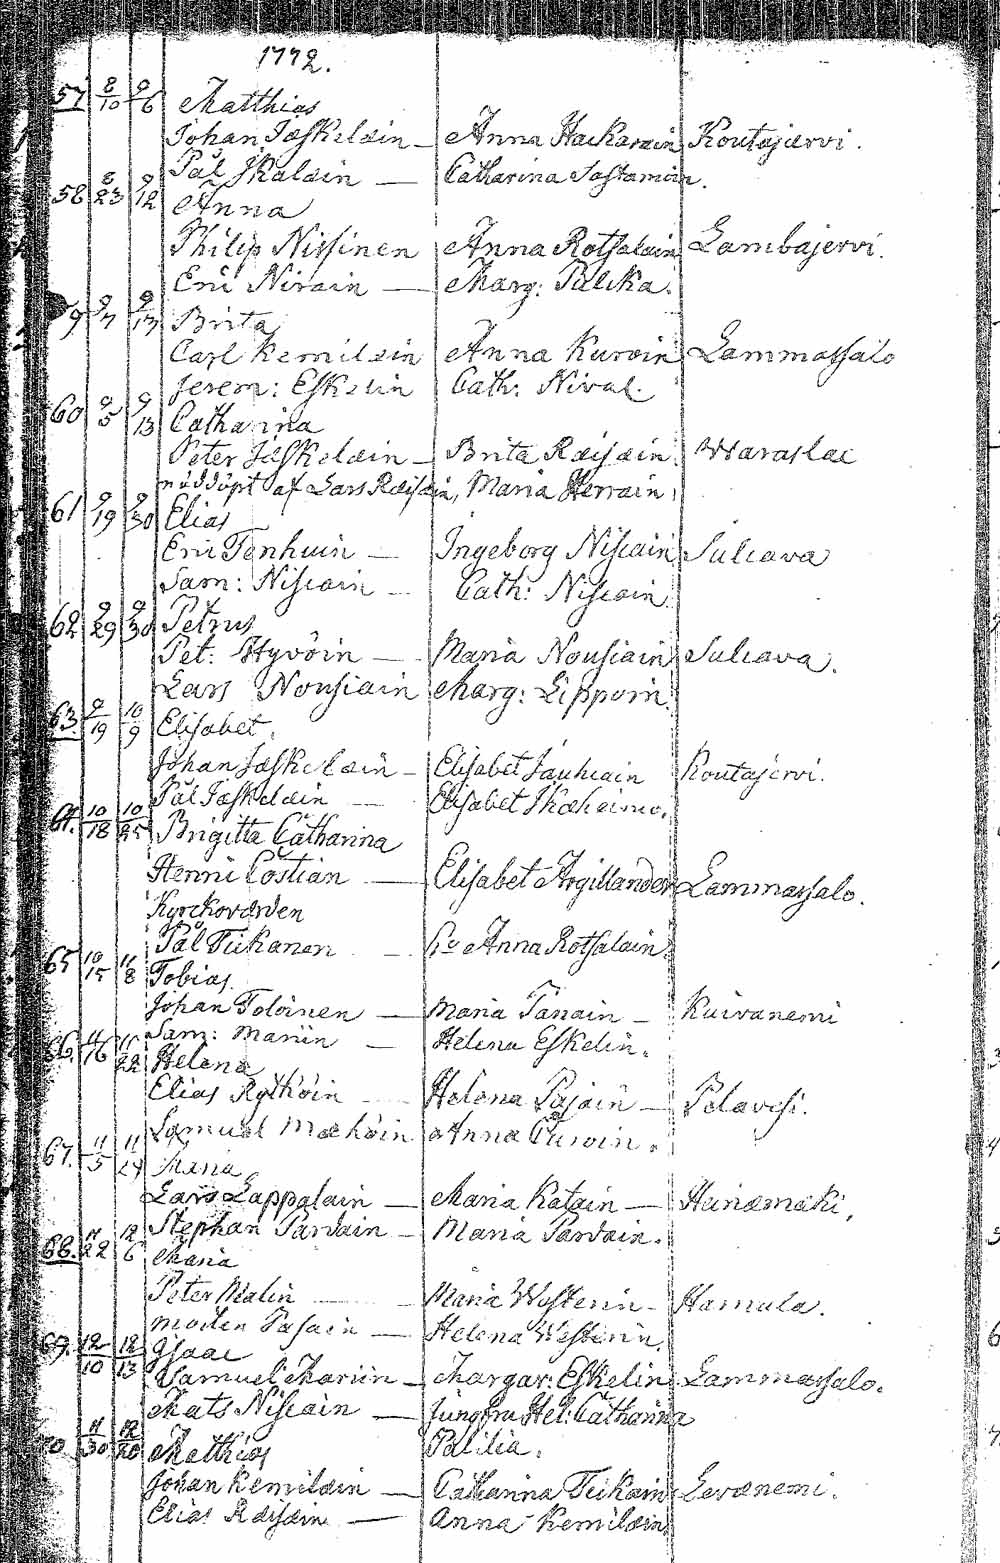 1772.
57 8/10 9/6 Matthias
Johan Jæskelæin – Anna Hackarain Koutajærvi.
Pål Ikalain — Catharina Sastamoin.
58 8/23 9/12 Anna
Philip Nissinen Anna Rotsalain Lambajervi.
Eric Nirain — Marg: Pulcka.
9. 9/7 9/13 Brita
Carl Kemilæin Anna Kurvin Lammassalo
Jerem: Eskelin Cath: Nival.
60 9/5 9/13 Catharina
Peter Jæskelæin – Brita Ræisæin. Waraslax
nöddöpt af Lars Ræisæin, Maria Herrain.
61 9/19 9/30 Elias
Eric Tenhuin — Ingeborg Niscain Sulcava
Sam: Niscain – Cath: Niscain.
62 9/29 9/30 Petrus
Pet: Hyvöin — Maria Nousiain Sulcava.
Lars Nousiain Marg: Lippoin.
63. 9/19 10/9 Elisabet.
Johan Jæskelæin – Elisabet Jauhiain Koutajervi.
Pål Jæskelæin — Elisabet Ikæheimo.
64. 10/18 10/25 Brigitta Catharina
Henric Costian — Elisabet Argillander Lammassalo.
Kyrckovärden
Pål Tiikanen – Hu Anna Rotsalain.
65 10/15 11/8 Tobias.
Johan Toloinen — Maria Tanain – Kuivanemi
Sam: Mariin — Helena Eskelin.
66. 11/16 11/22 Helena
Elias Rytköin — Helena Pasain — Pelavesi.
Samuel Mæhöin Anna Turoin.
67. 11/5 11/29 Maria
Lars Lappalain — Maria Katain — Heinemäki,
Stephan Parvain – Maria Parvain.
68. 11/22 12/6 Maria
Peter Malin — Maria Westerin – Hamula.
Påsain — Helena Westerin.
69. 12/10 12/13 Isaac
Samuel Mariin – Margar: Eskelin Lammassalo.
Mats Niscain — Jungfru Hel: Catharina
70 11/30 12/20 Matthias Palilia.
Johan Kemilæin — Catharina Tiikain Levænemi.
Elias Ræisæin — Anna Kemilæin